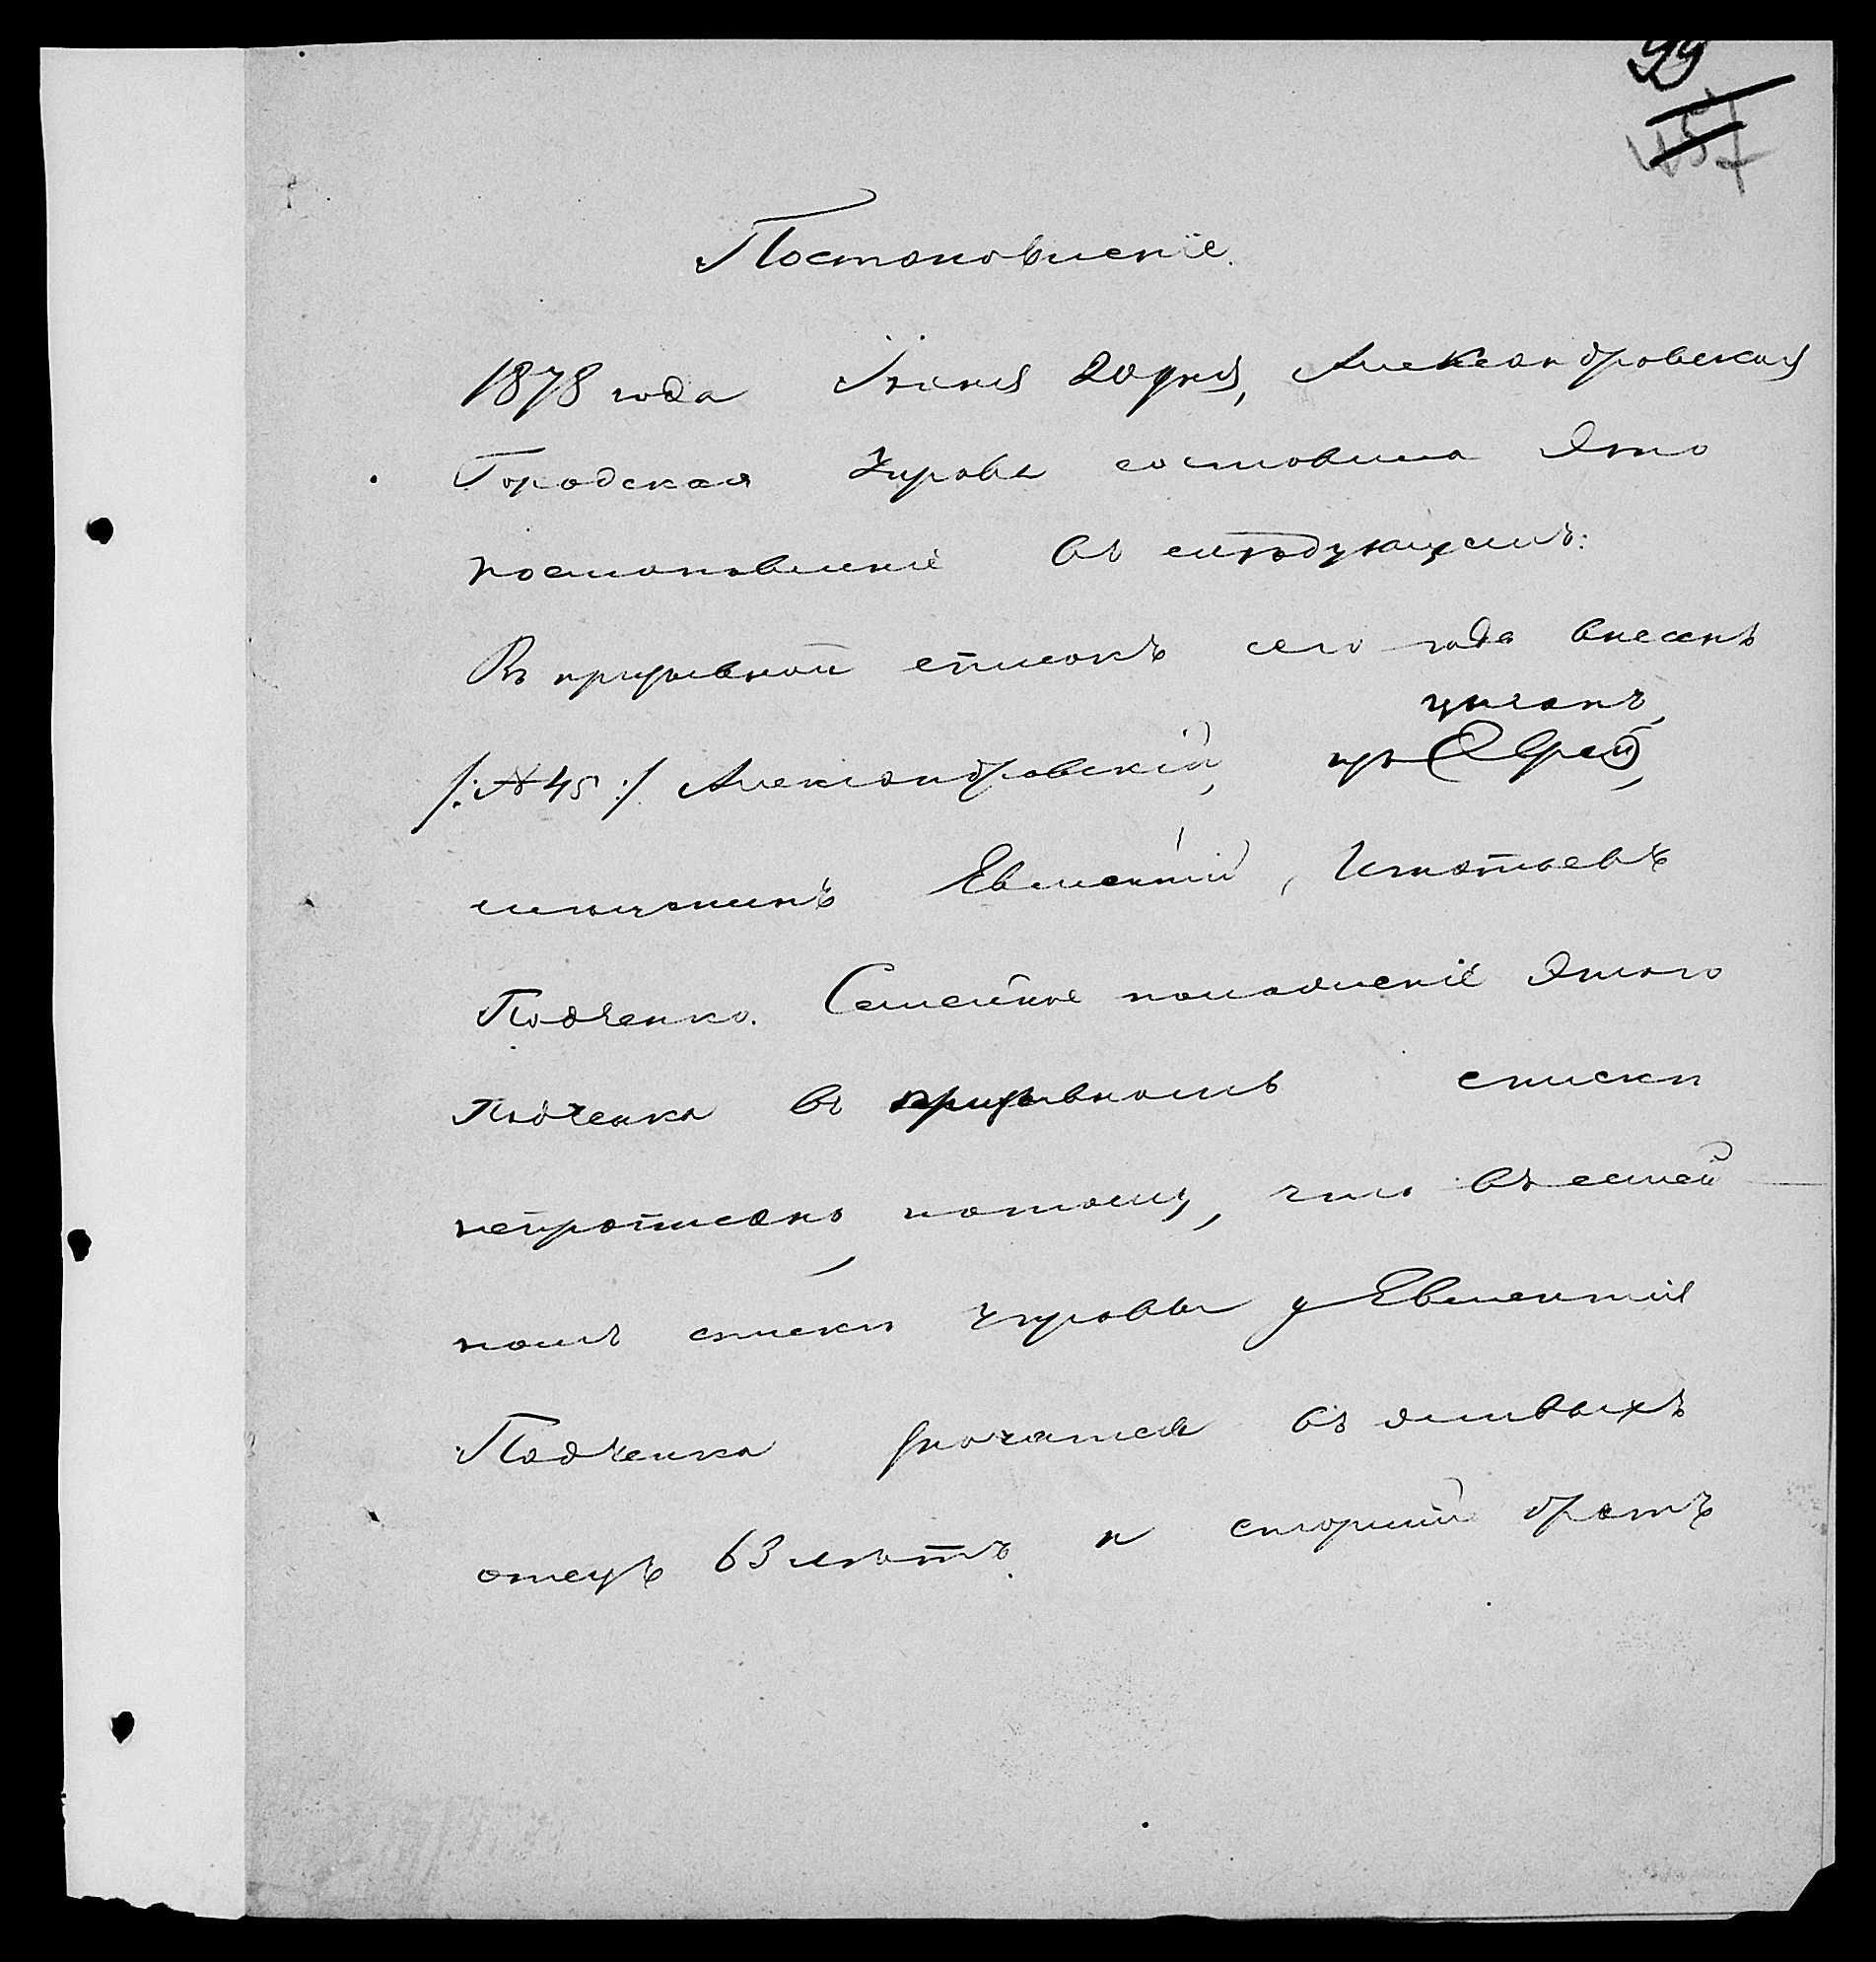 99
457
Постановленіе.
1878 года Іюня 20 дня, Александровская
Городская Управа составила это
постановленіе въ слѣдующемъ:
Въ призывной списокъ сего года внесенъ
цыганъ,
/: № 45 :/ Александровскій, изъ Еврей,
мѣщанинъ Евлентій, Игнатьевъ
Подченко. Семейное положеніе этого
Подченка въ призывномъ списки
непрописано, потому, что въ семей
номъ списки Управы у Евлентія
Подченка значатся въ живыхъ
отецъ 63 лѣтъ. и старшій братъ